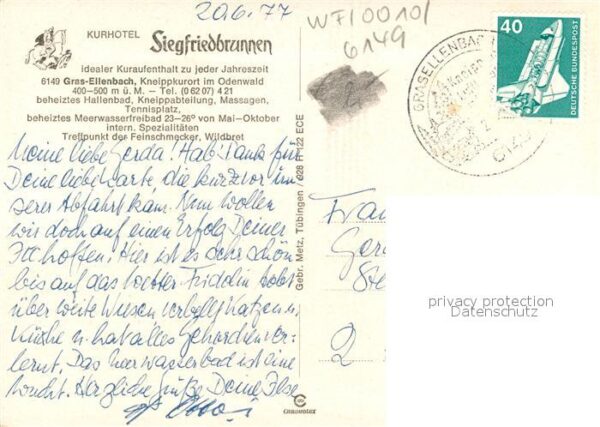 20.6.77
WF/0010/
6149
KURHOTEL Siegfriedbrunnen
idealer Kuraufenthalt zu jeder Jahreszeit
6149 Gras-Ellenbach, Kneippkurort im Odenwald
400–500 m ü. M. – Tel. (0 62 07) 4 21
beheiztes Hallenbad, Kneippabteilung, Massagen,
Tennisplatz,
beheiztes Meerwasserfreibad 23–26° von Mai–Oktober
intern. Spezialitäten
Treffpunkt der Feinschmecker, Wildbret
Meine liebe Gerda! Hab' Dank für
Deine liebe Karte, die kurz vor un
serer Abfahrt kam. Nun wollen
wir doch auf einen Erfolg Deiner
hoffen. Hier ist es sehr schön
bis auf das Wetter. Fridolin tobt
über weite Wiesen verbellt Katzen u.
Kühe u. hat alles Gehorchen ver-
lernt. Das Meerwasserbad ist eine
Wucht. Herzliche Grüße Deine Ilse
Gebr. Metz, Tübingen / 928 R 122 ECE
Cramolux
GRASELLENBACH
40
DEUTSCHE BUNDESPOST
Frau
Ger
Ste
2
privacy protection
Datenschutz